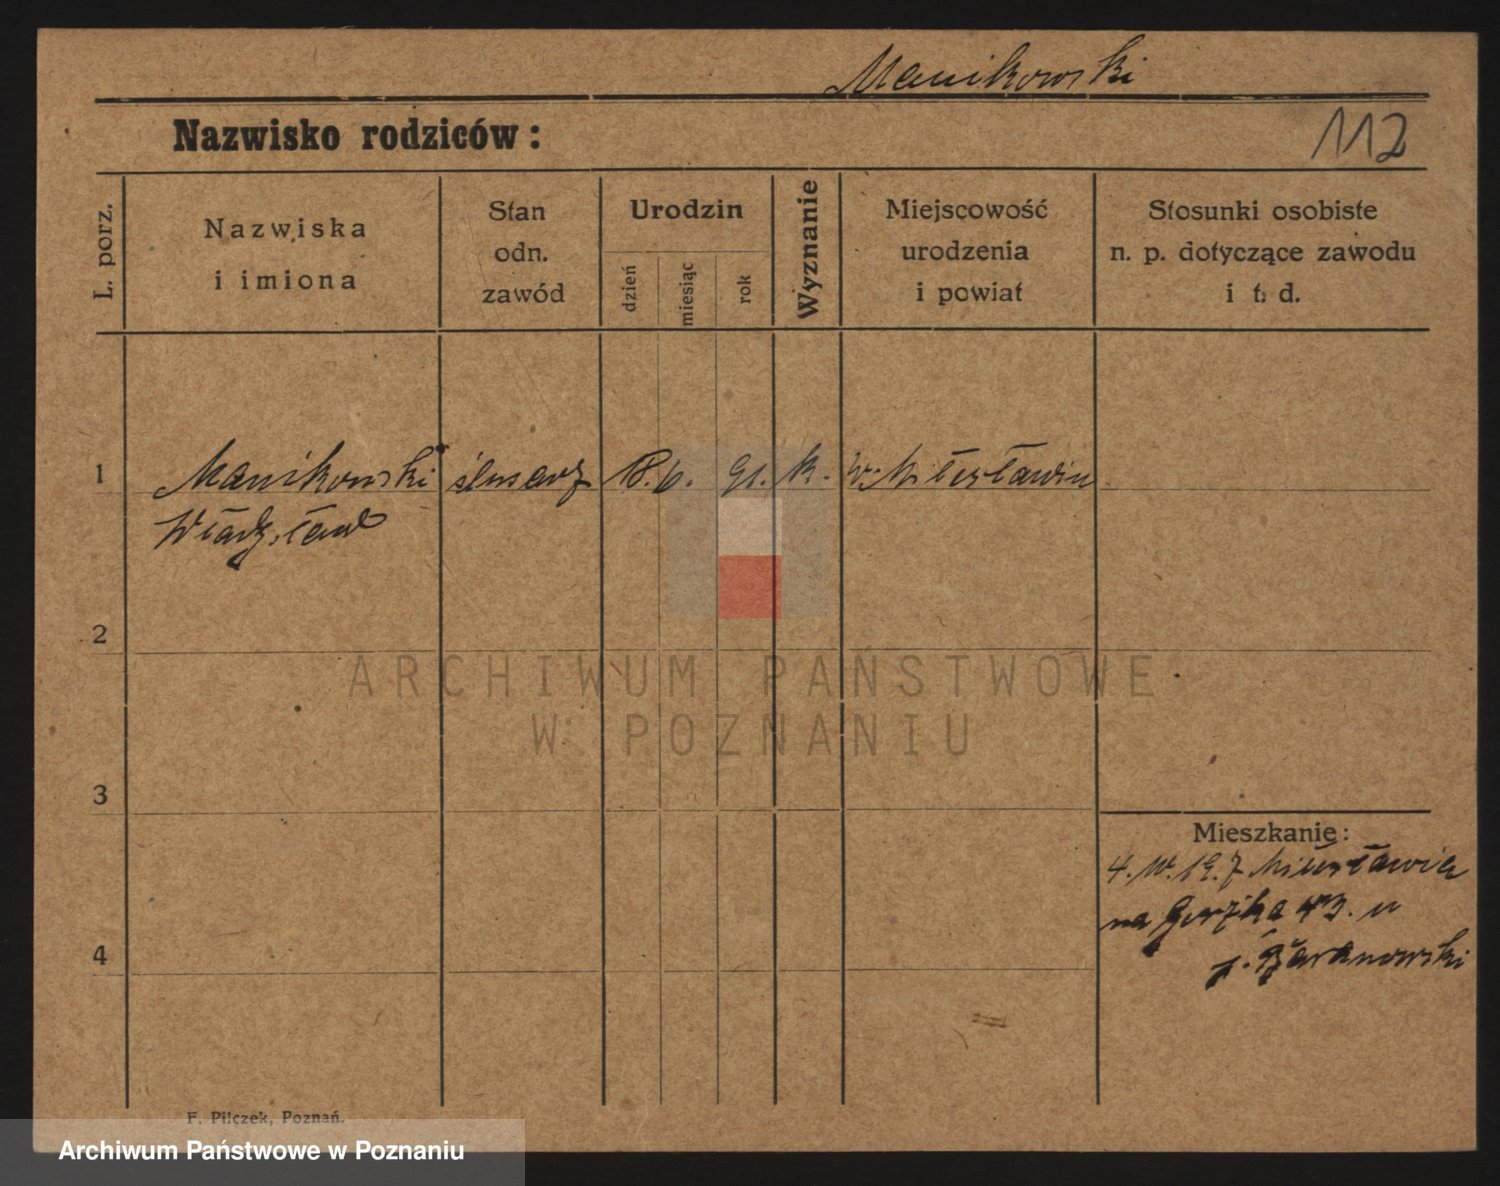 Manikowski
Nazwisko rodziców:
112
L. porz.
Nazwiska
i imiona
Stan
odn.
zawód
Urodzin
dzień
miesiąc
rok
Wyznanie
Miejscowość
urodzenia
i powiat
Stosunki osobiste
n. p. dotyczące zawodu
i t. d.
1 Manikowski ślusarz 18. 6. 91. k. w.
Władysław
2
ARCHIWUM PAŃSTWOWE
W POZNANIU
3
Mieszkanie:
4.
na 43. u
p. Baranowski
4
F. Pilczek, Poznań.
Archiwum Państwowe w Poznaniu